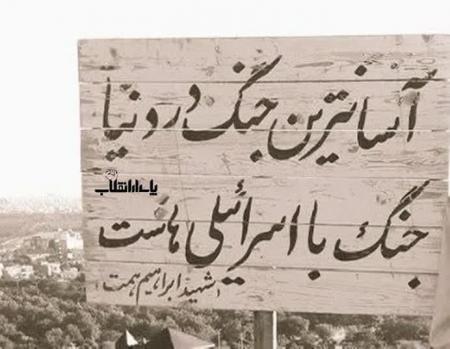 آسانترین جنگ در دنیا
جنگ با اسرائیلی هاست
شهید ابراهیم همت